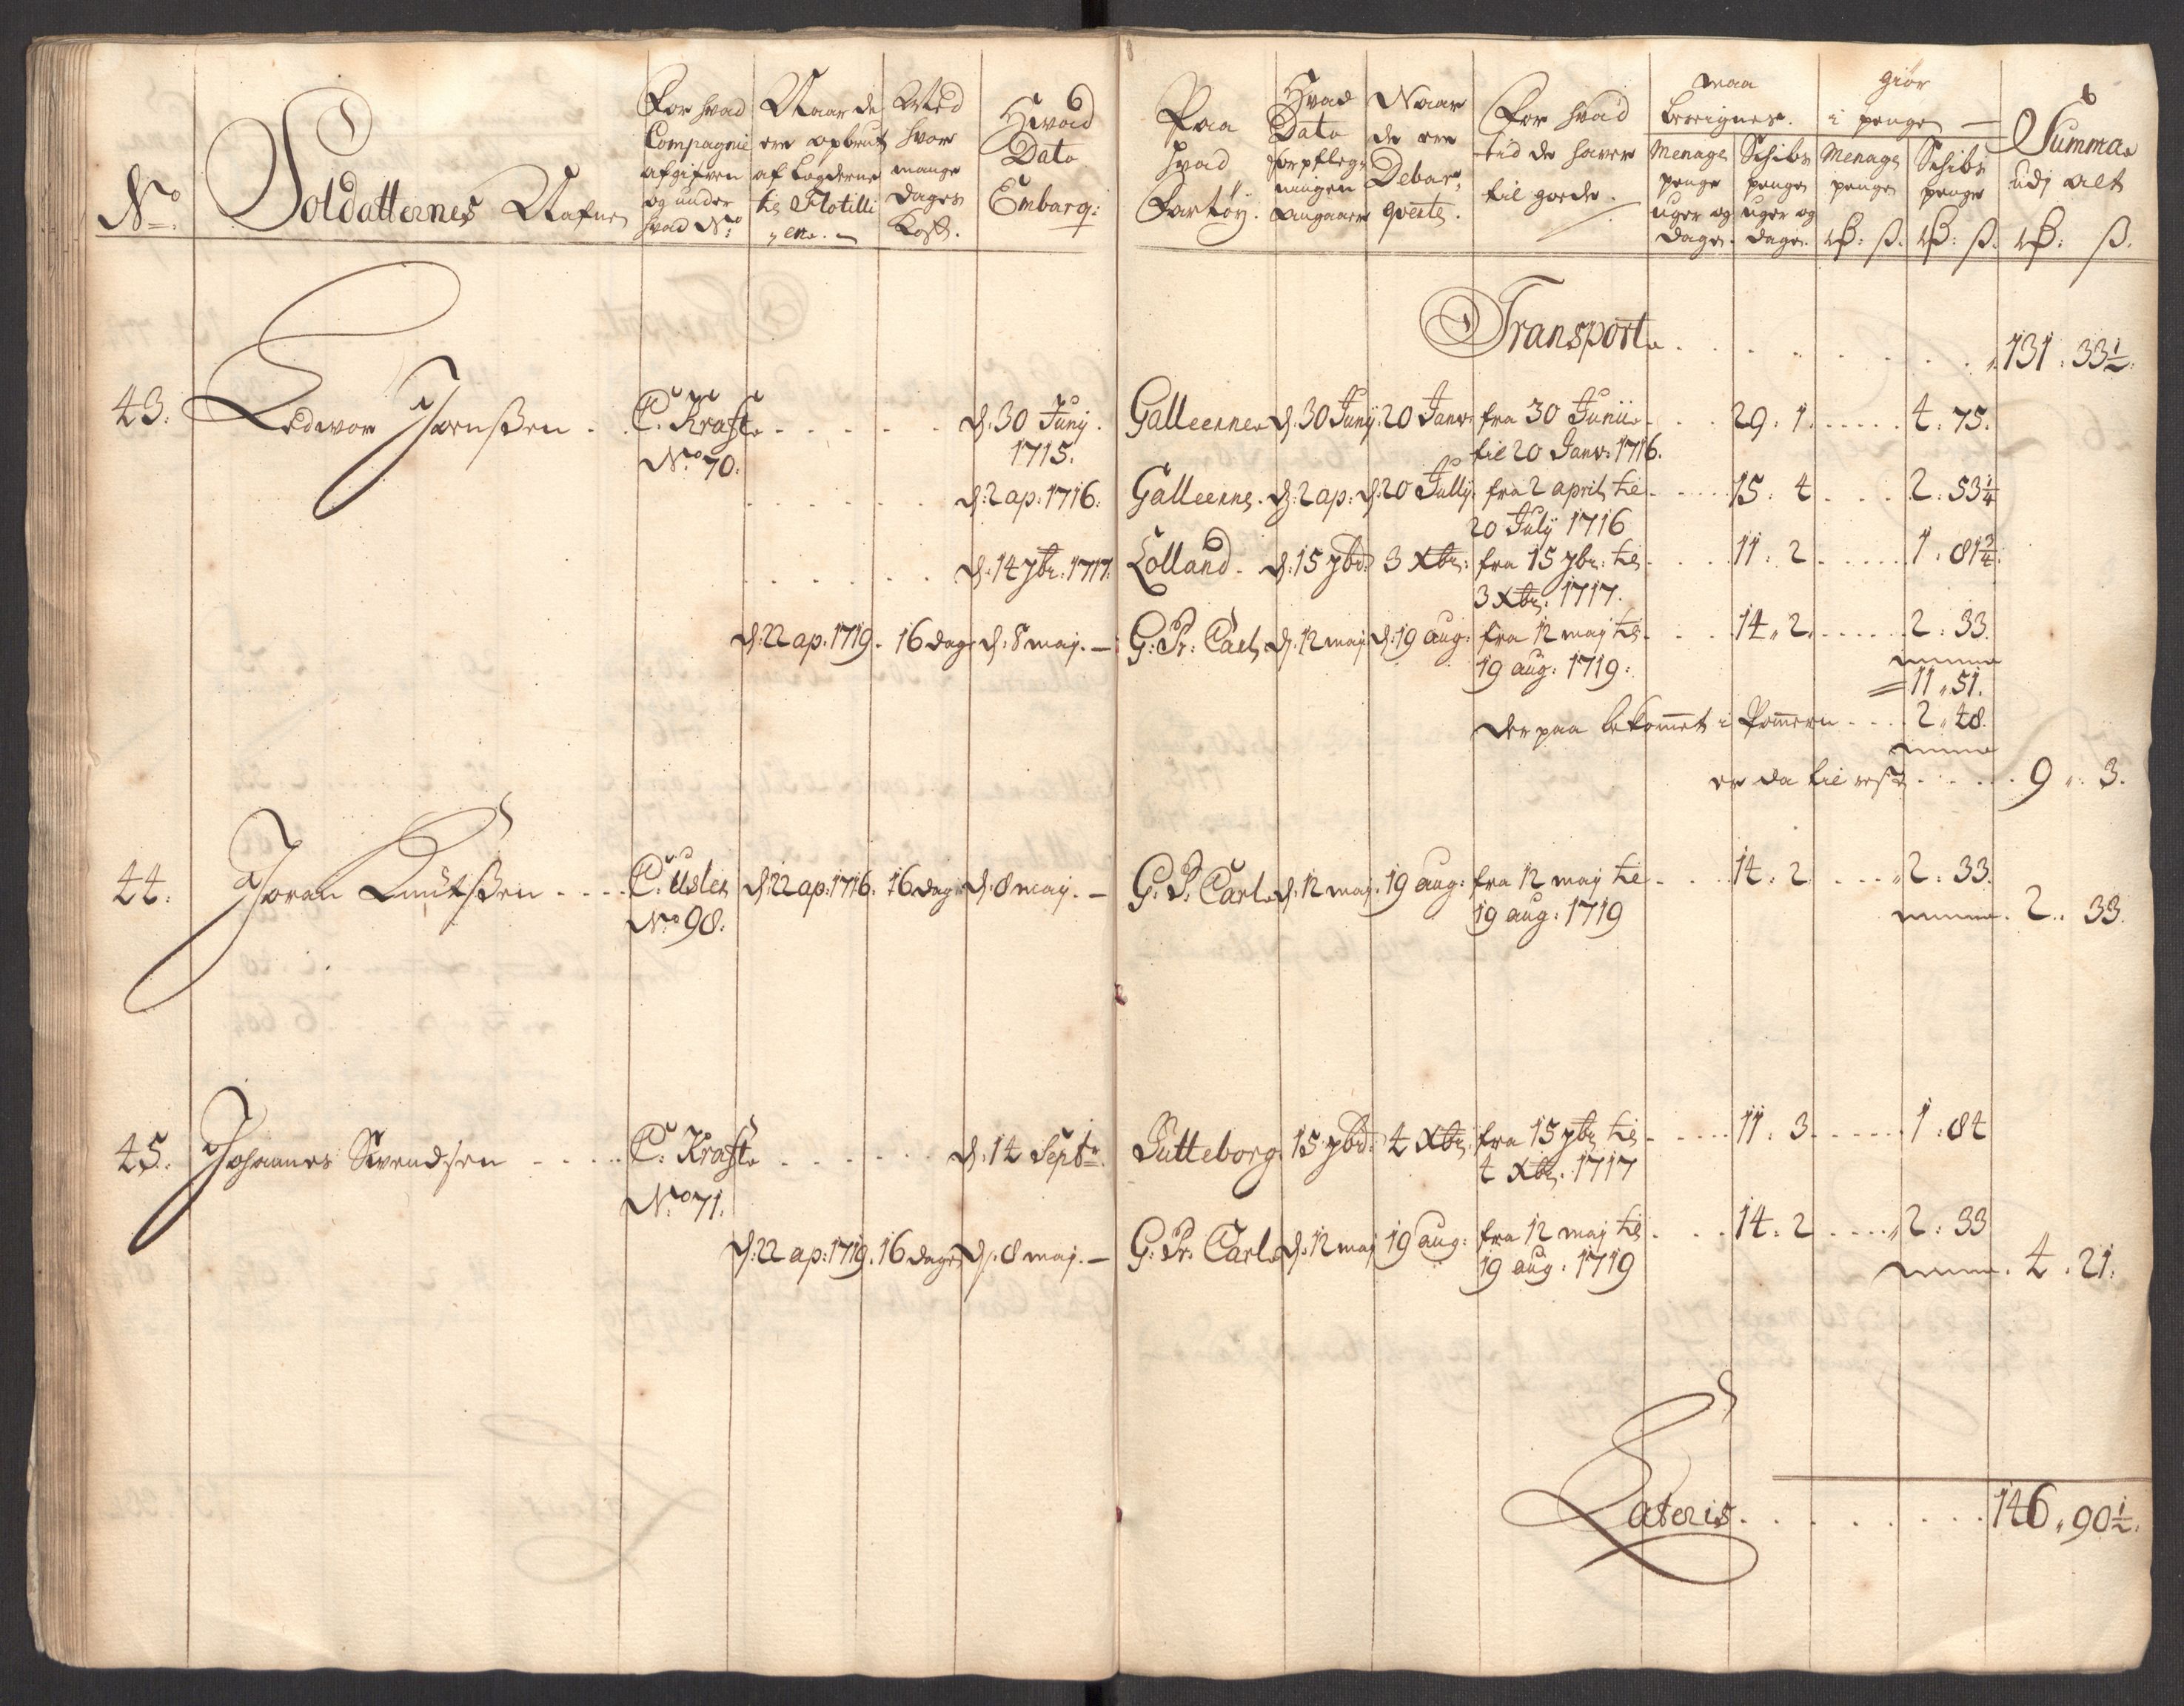 No.
Soldatternes Nafne
For hvad
Compagnie
afgifven
og under
hvad No:
Naar de
ere opbrut
af Lægderne
til Flotilli
ene.
Med
hvor
mange
Dages
Kost.
Hvad
Dato
Embarq:
Paa
hvad
Fartöÿ.
Hvad
Dato
forpfleg-
ningen
angaaer
Naar
de ere
Debar-
qverte.
For hvad
tid de haver
til goede.
maa
bereignes.
Menage
penge
uger og
dage.
Schibs
penge
uger og
dage.
giör
i penge
Menage
penge
rß: ß.
Schibs
penge
rß: ß.
Summa
udj alt
rß: ß.
Transport . . . . . . . 131. 33½.
43. Ledwor Joenßen . C. Kraft . . . . . d. 30 Junÿ. Galleerne d. 30 Junÿ. 20 Janv: fra 30 Junii . . . 29. 1. . . . . 4. 75.
No. 70. 1715. til 20 Janv: 1716.
d. 2 ap: 1716. Galleerne. d. 2 ap: d. 20 Julÿ: fra 2 april til . . . 15. 4. . . . 2. 53¼
20 Julÿ 1716
d. 14 7br: 1717. Lolland. d. 15 7br: 3 Xbr: fra 15 7br: til . . . 11. 2. . . . . 1. 81¾.
3 Xbr: 1717.
d: 22 ap: 1719. 16 dage d. 8 maj. — G. Pr. Carl d. 12 maj d. 19 aug: fra 12 maj til . . . 14. 2. . . . . 2. 33.
19 aug: 1719.
11. 51.
der paa bekommet i Pommern . . . . 2. 48.
er da til rest . . . . . 9. 3.
44. Joran Knutßen . . . . C. Usler d: 22 ap: 1716. 16 dage d. 8 maj. — G. P. Carl d. 12 maj. 19 aug: fra 12 maj til . . . 14. 2 . . . 2. 33.
No. 98. 19 aug: 1719 2. 33.
45. Johannes Svendsen . . . . C. Kraft . . . . . d. 14 Septr. Gutteborg. 15 7br: 4 Xbr: fra 15 7br til . . . . 11. 3. . . . . 1. 84
No. 71. 4 Xbr. 1717
d: 22 ap: 1719. 16 dage d. 8 maj. — G. Pr. Carl d. 12 maj 19 aug: fra 12 maj til . . . 14. 2 . . . . 2. 33
19 aug: 1719 4. 21.
Lateris . . . . . . . 146. 90½.